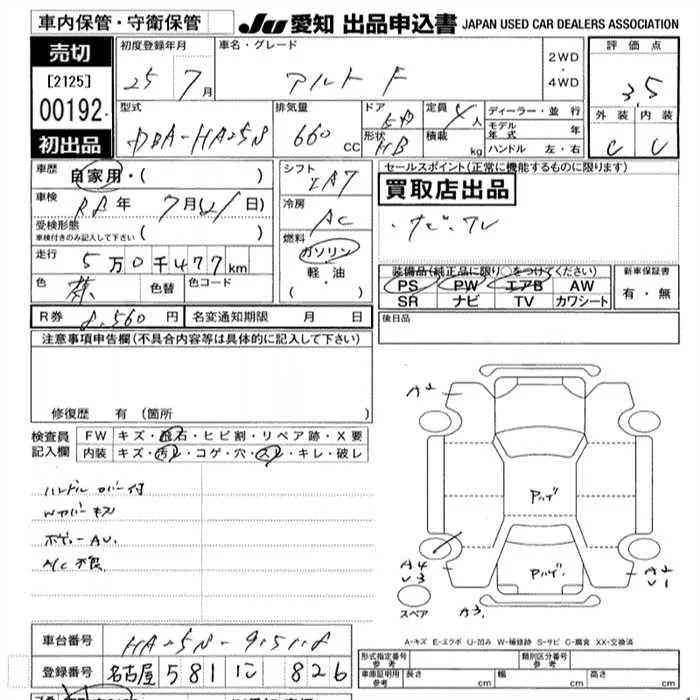 車内保管・守衛保管
JU 愛知 出品申込書 JAPAN USED CAR DEALERS ASSOCIATION
売切
[2125]
00192
初出品
初度登録年月 25年 7月
車名・グレード アルト F
2WD・4WD
評価点 3.5
型式 DBA-HA25S
排気量 660cc
ドア 形状 HB
定員 4人
積載 kg
ディーラー・並行
モデル年式 年
ハンドル 左・右
外装 C 内装 C
車歴 自家用・( )
車検 R2年 7月(21日)
受検形態
車検付きのみ記入して下さい ( )
走行 5万0千477km
色 色替 色コード
シフト IA7
冷房 AC
燃料 ガソリン
軽油
( ・ )
セールスポイント(正常に機能するものに限ります)
買取店出品
・ナビ・TV
装備品(純正品に限り○をつけてください)
PS PW エアB AW
SR ナビ TV カワシート
新車保証書
有・無
R券 8,560円 名変通知期限 月 日
後日品
注意事項申告欄(不具合内容等は具体的に記入して下さい)
修復歴 有(箇所 )
検査員記入欄
FW キズ・飛石・ヒビ割・リペア跡・X要
内装 キズ・汚れ・コゲ・穴・スレ・キレ・破レ
ハンドルカバー付
Wカバーキズ
ボディーAU.
A/C不良
A2
Pハゲ
Pハゲ.
A4
U3
A2
U1
A3.
スペア
A-キズ E-エクボ U-凹み W-補修跡 S-サビ C-腐食 XX-交換済
車台番号 HA25S-
登録番号 名古屋 581 に 826
形式指定番号 参考
類別区分番号 参考
車庫証明用 参考 長さ cm 幅 cm 高さ cm